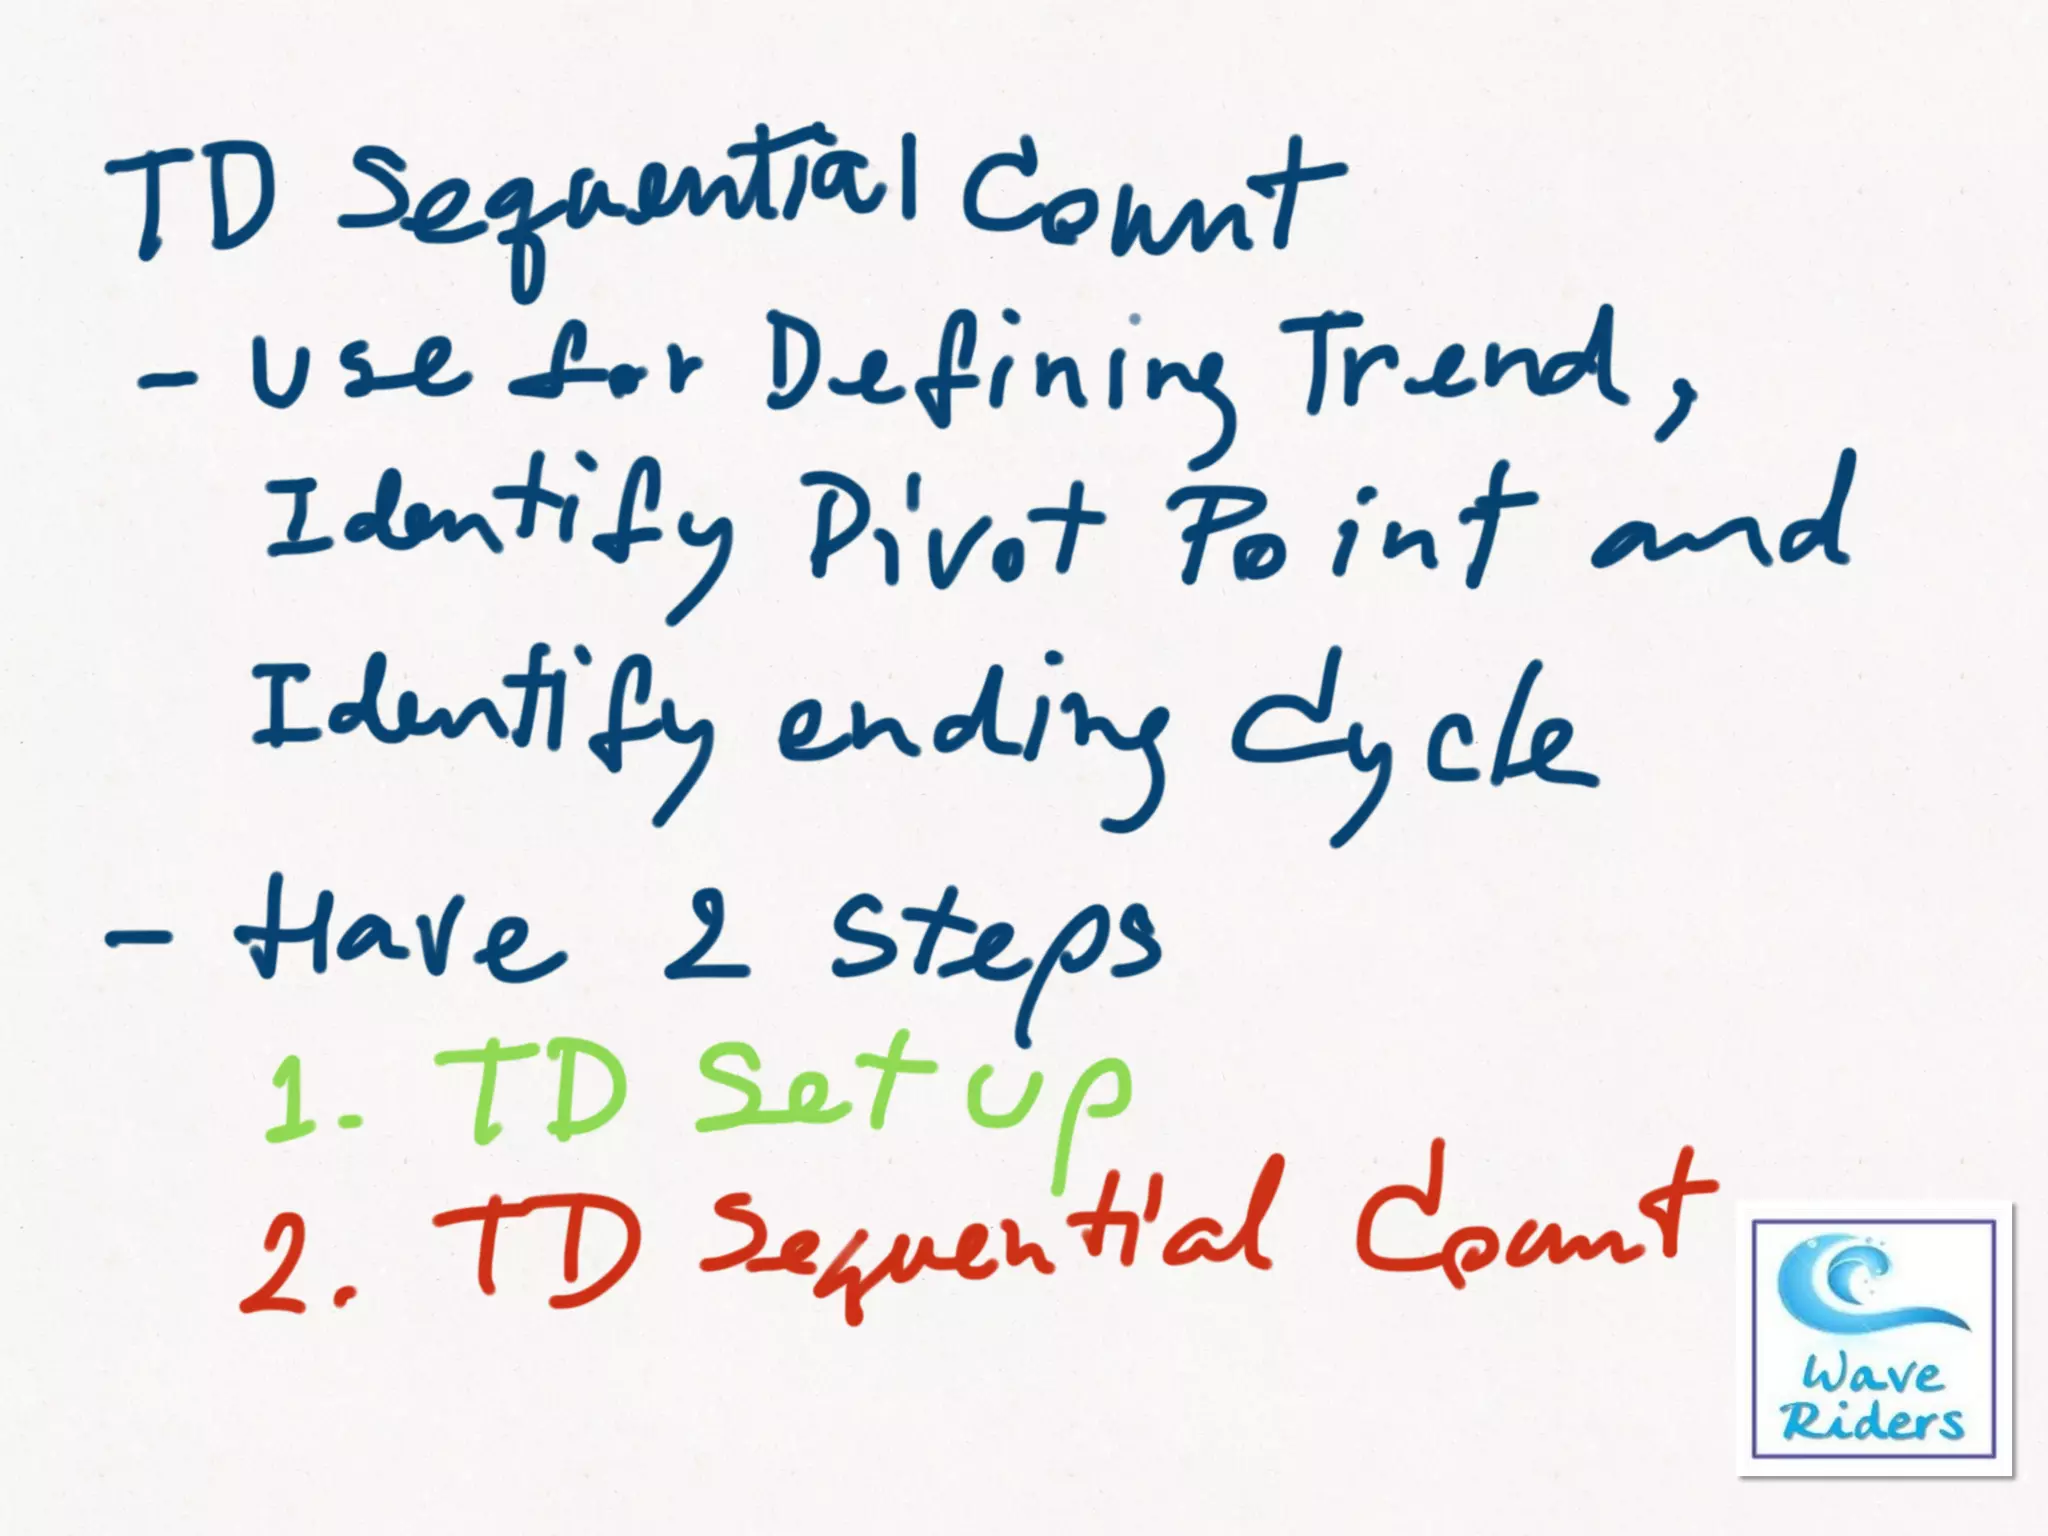 TD Sequential Count
- Use for Defining Trend,
Identify Pivot Point and
Identify ending Cycle
- Have 2 steps
1. TD Setup
2. TD Sequential Count
Wave
Riders